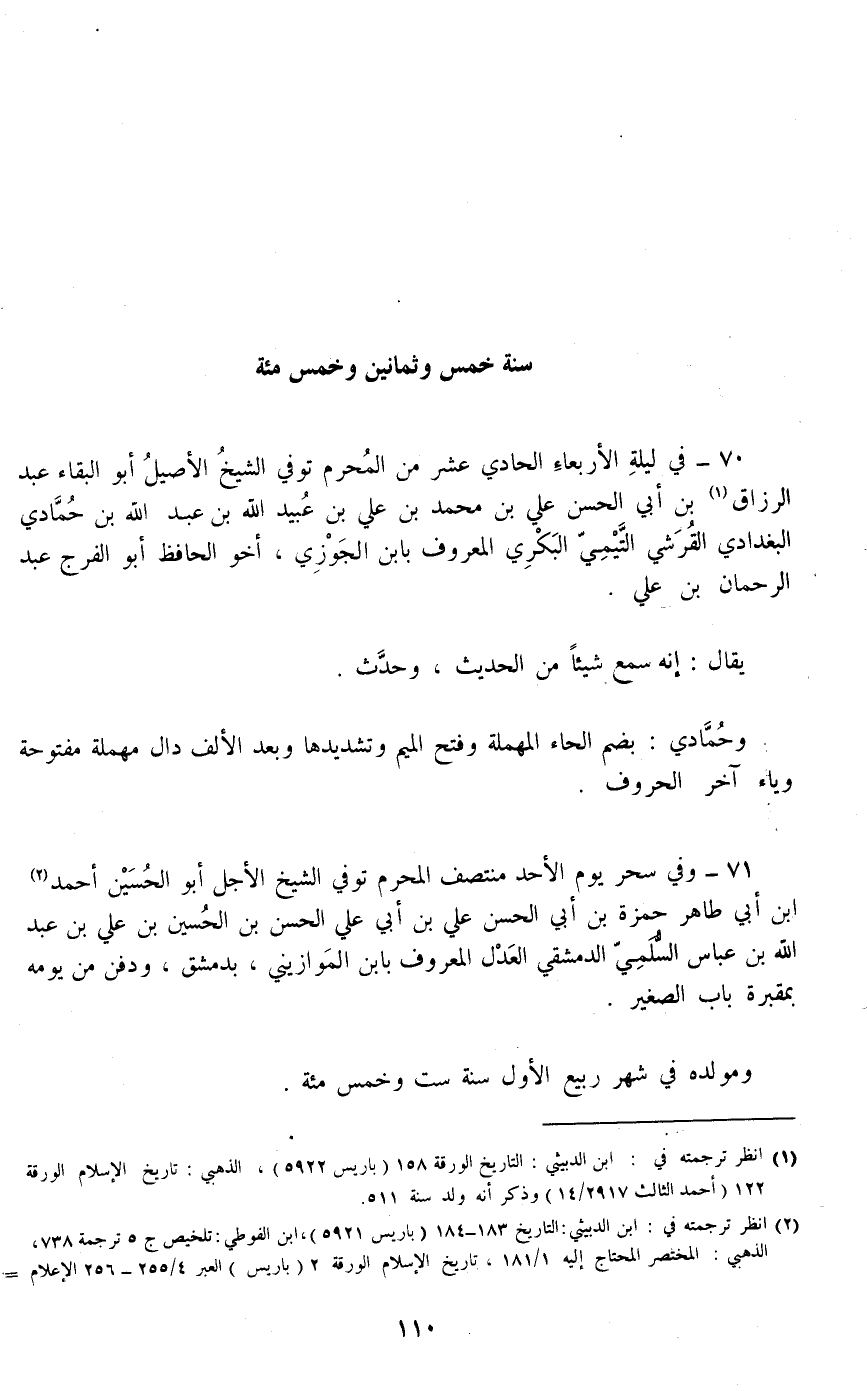 سنة خمس وثمانين وخمس مئة
٧٠ – في ليلةِ الأربعاءِ الحادي عشر من المُحرم توفي الشيخُ الأصيلُ أبو البقاء عبد
الرزاق(١) بن أبي الحسن علي بن محمد بن علي بن عُبيد الله بن عبد الله بن حُمَّادي
البغدادي القُرَشي التَّيْمِيّ البَكْرِي المعروف بابن الجَوْزِي ، أخو الحافظ أبو الفرج عبد
الرحمان بن علي .
يقال : إنه سمع شيئاً من الحديث ، وحدَّث .
وحُمَّادي : بضم الحاء المهملة وفتح الميم وتشديدها وبعد الألف دال مهملة مفتوحة
وياء آخر الحروف .
٧١ – وفي سحر يوم الأحد منتصف المحرم توفي الشيخ الأجل أبو الحُسَيْن أحمد(٢)
ابن أبي طاهر حمزة بن أبي الحسن علي بن أبي علي الحسن بن الحُسين بن علي بن عبد
الله بن عباس السُّلَمِيّ الدمشقي العَدْل المعروف بابن المَوازيني ، بدمشق ، ودفن من يومه
بمقبرة باب الصغير .
ومولده في شهر ربيع الأول سنة ست وخمس مئة .
(١) انظر ترجمته في : ابن الدبيثي : التاريخ الورقة ١٥٨ ( باريس ٥٩٢٢ ) ، الذهبي : تاريخ الإسلام الورقة
١٢٢ ( أحمد الثالث ١٤/٢٩١٧ ) وذكر أنه ولد سنة ٥١١.
(٢) انظر ترجمته في : ابن الدبيثي : التاريخ ١٨٣–١٨٤ ( باريس ٥٩٢١ )، ابن الفوطي : تلخيص ج ٥ ترجمة ٧٣٨،
الذهبي : المختصر المحتاج إليه ١٨١/١ ، تاريخ الإسلام الورقة ٢ ( باريس ) العبر ٢٥٥/٤ – ٢٥٦ الإعلام =
١١٠